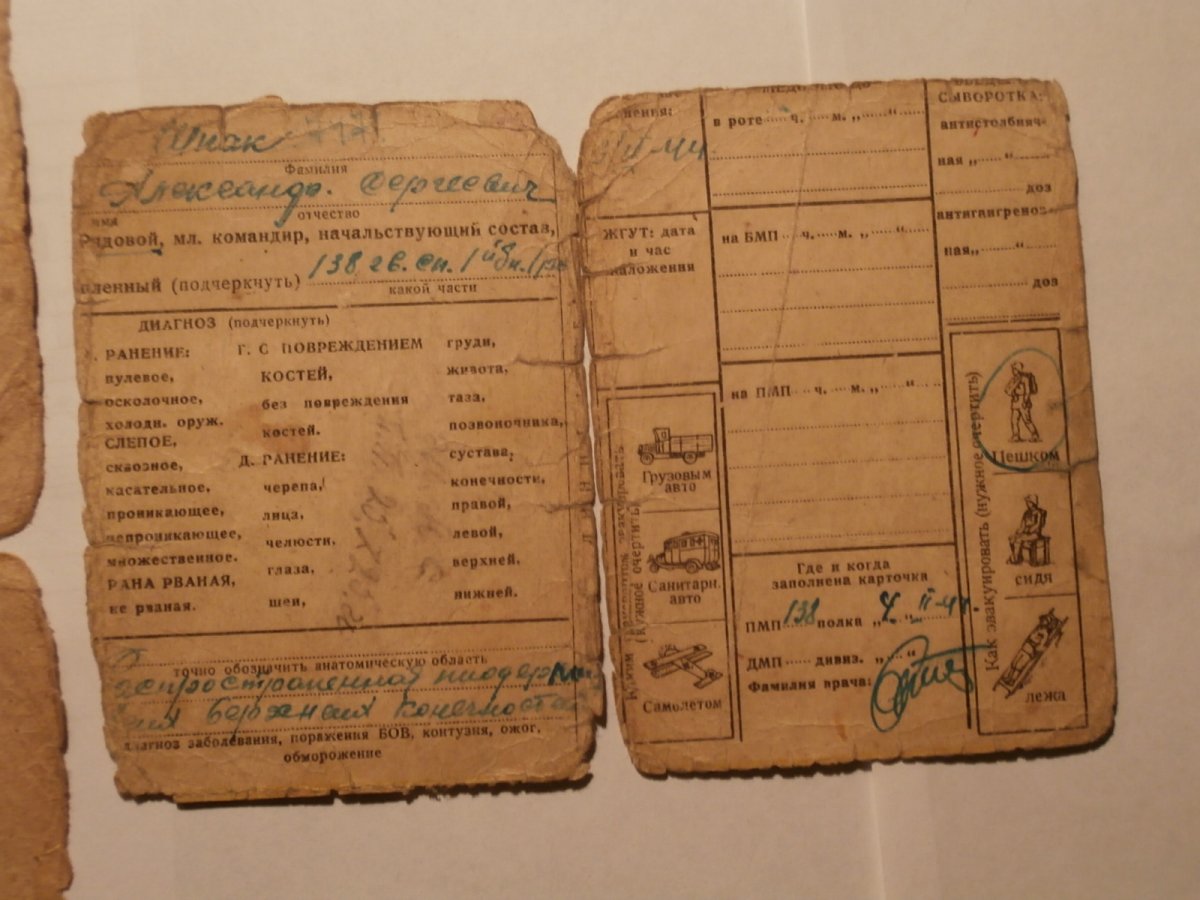 Шпак
Фамилия
Александр Сергеевич
имя
отчество
Рядовой, мл. командир, начальствующий состав,
вленный (подчеркнуть) 138 гв. сп. 1й бн.
какой части
ДИАГНОЗ (подчеркнуть)
РАНЕНИЕ: Г. С ПОВРЕЖДЕНИЕМ груди,
пулевое, КОСТЕЙ, живота,
осколочное, без повреждения таза,
холодн. оруж. костей. позвоночника,
СЛЕПОЕ,
сквозное, Д. РАНЕНИЕ: сустава,
касательное, черепа, конечности,
проникающее, лица, правой,
непроникающее, челюсти, левой,
множественное. глаза, верхней.
РАНА РВАНАЯ,
не рваная. шеи, нижней.
точно обозначить анатомическую область
верхней конечности
диагноз заболевания, поражения БОВ, контузия, ожог,
обморожение
нения:
44
ЖГУТ: дата
и час
наложения
в роте ч. м. „ “
на БМП ч. м. „ “
на ПМП ч. м. „ “
СЫВОРОТКА:
антистолбняч-
ная „ “
доз
антигангреноз-
ная „ “
доз
(нужное очертить)
Грузовым
авто
Санитарн.
авто
Самолетом
Где и когда
заполнена карточка
ПМП 138 полка „ “ II-44.
ДМП дивиз. „ “
Фамилия врача:
Как эвакуировать (нужное очертить)
Пешком
сидя
лежа